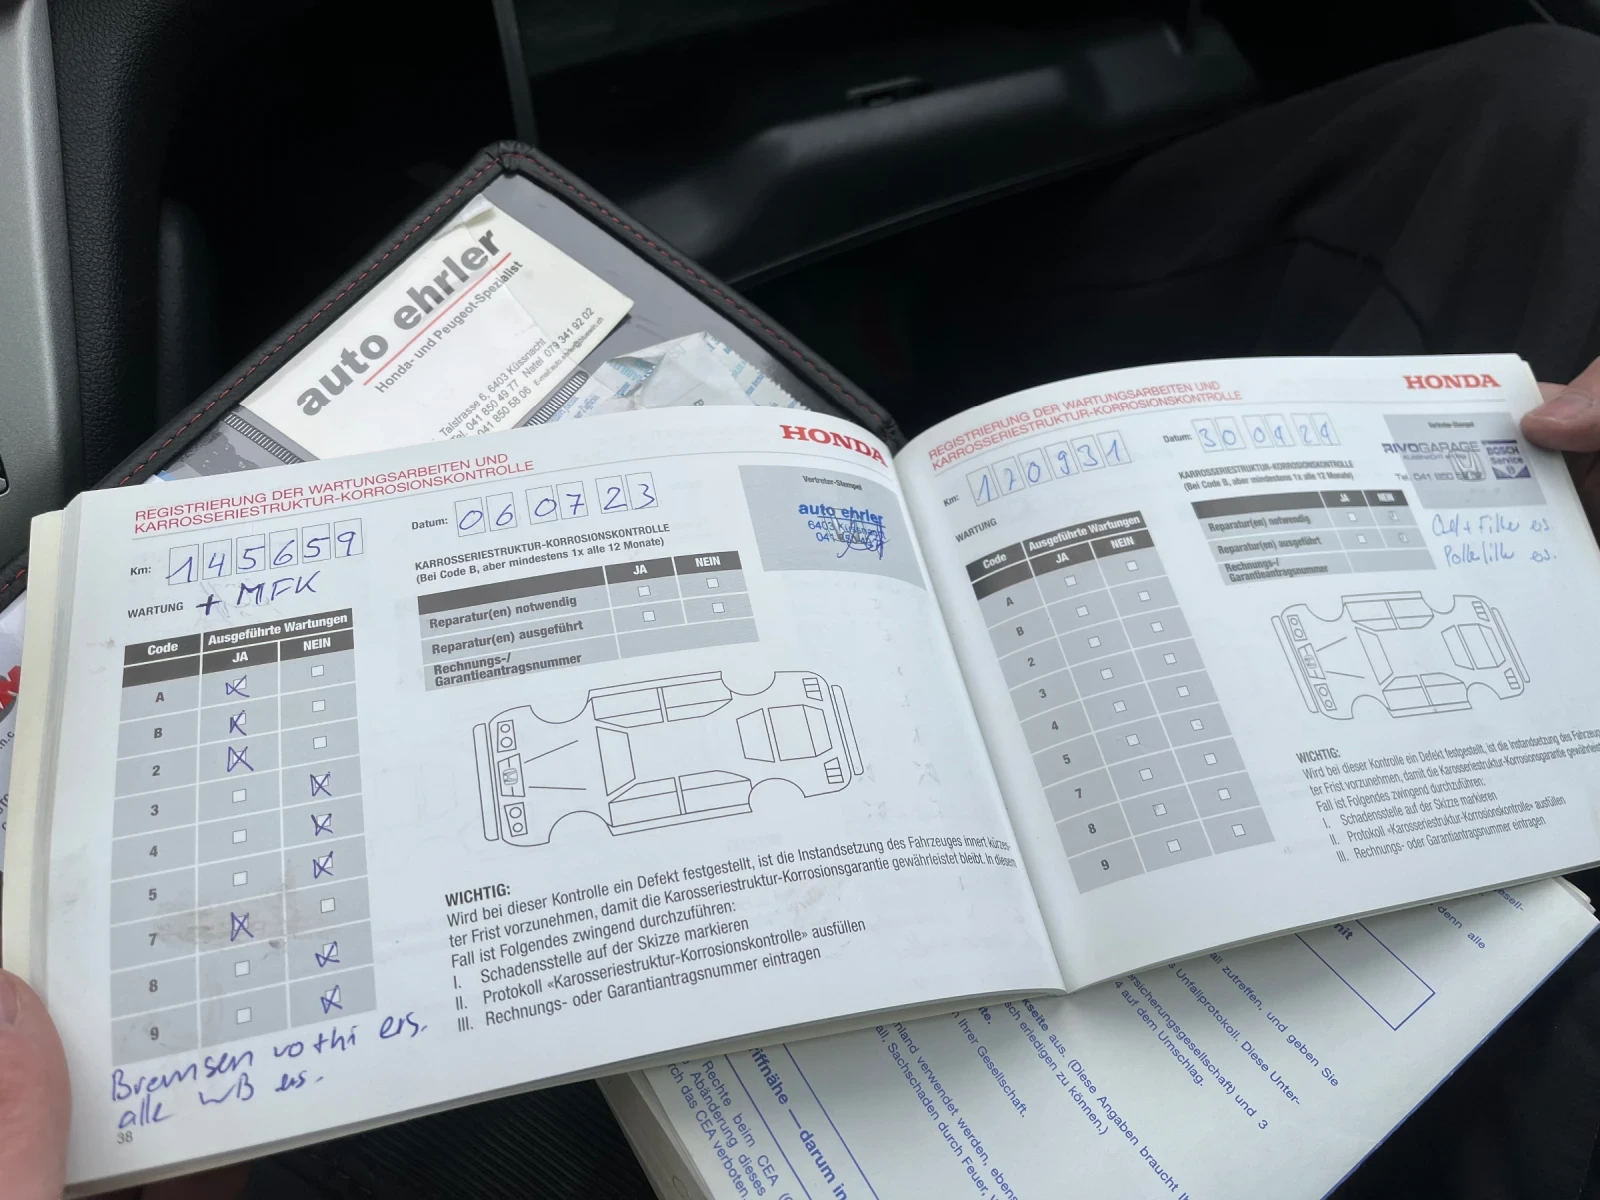 auto ehrler
Honda- und Peugeot-Spezialist
Talstrasse 6, 6403 Küssnacht
Tel. 041 850 49 77 Natel 079 341 92 02
041 850 58 06
HONDA
REGISTRIERUNG DER WARTUNGSARBEITEN UND
KARROSSERIESTRUKTUR-KORROSIONSKONTROLLE
Km: 145659
Datum: 06 07 23
Vertreter-Stempel
auto ehrler
6403 Küssnacht
WARTUNG + MFK
KARROSSERIESTRUKTUR-KORROSIONSKONTROLLE
(Bei Code B, aber mindestens 1x alle 12 Monate)
JA NEIN
Reparatur(en) notwendig
Reparatur(en) ausgeführt
Rechnungs-/
Garantieantragsnummer
Code Ausgeführte Wartungen
JA NEIN
A
B
2
3
4
5
7
8
9
WICHTIG:
Wird bei dieser Kontrolle ein Defekt festgestellt, ist die Instandsetzung des Fahrzeuges innert kürzes-
ter Frist vorzunehmen, damit die Karosseriestruktur-Korrosionsgarantie gewährleistet bleibt. In diesem
Fall ist Folgendes zwingend durchzuführen:
I. Schadensstelle auf der Skizze markieren
II. Protokoll «Karosseriestruktur-Korrosionskontrolle» ausfüllen
III. Rechnungs- oder Garantiantragsnummer eintragen
Bremsen vo+hi ers.
alle WB ers.
38
HONDA
REGISTRIERUNG DER WARTUNGSARBEITEN UND
KARROSSERIESTRUKTUR-KORROSIONSKONTROLLE
Km: 170931
Datum: 30 04 24
Vertreter-Stempel
RIVOGARAGE
BOSCH
Service
Tel. 041 850
WARTUNG
KARROSSERIESTRUKTUR-KORROSIONSKONTROLLE
(Bei Code B, aber mindestens 1x alle 12 Monate)
JA NEIN
Reparatur(en) notwendig
Reparatur(en) ausgeführt
Rechnungs-/
Garantieantragsnummer
Oel + Filter ers.
Pollenfilter ers.
Code Ausgeführte Wartungen
JA NEIN
A
B
2
3
4
5
7
8
9
WICHTIG:
Wird bei dieser Kontrolle ein Defekt festgestellt, ist die Instandsetzung des Fahrzeug
ter Frist vorzunehmen, damit die Karosseriestruktur-Korrosionsgarantie gewährleist
Fall ist Folgendes zwingend durchzuführen:
I. Schadensstelle auf der Skizze markieren
II. Protokoll «Karosseriestruktur-Korrosionskontrolle» ausfüllen
III. Rechnungs- oder Garantiantragsnummer eintragen
denn alle
all zutreffen, und geben Sie
s Unfallprotokoll. Diese Unter-
ersicherungsgesellschaft) und 3
4 auf dem Umschlag.
kseite aus. (Diese Angaben braucht
sch erledigen zu können.)
n Ihrer Gesellschaft.
nland verwendet werden, eben
all, Sachschaden durch Feuer,
iffnähe — darum in
Rechte beim CEA
Abänderung dieses
rch das CEA verboten.